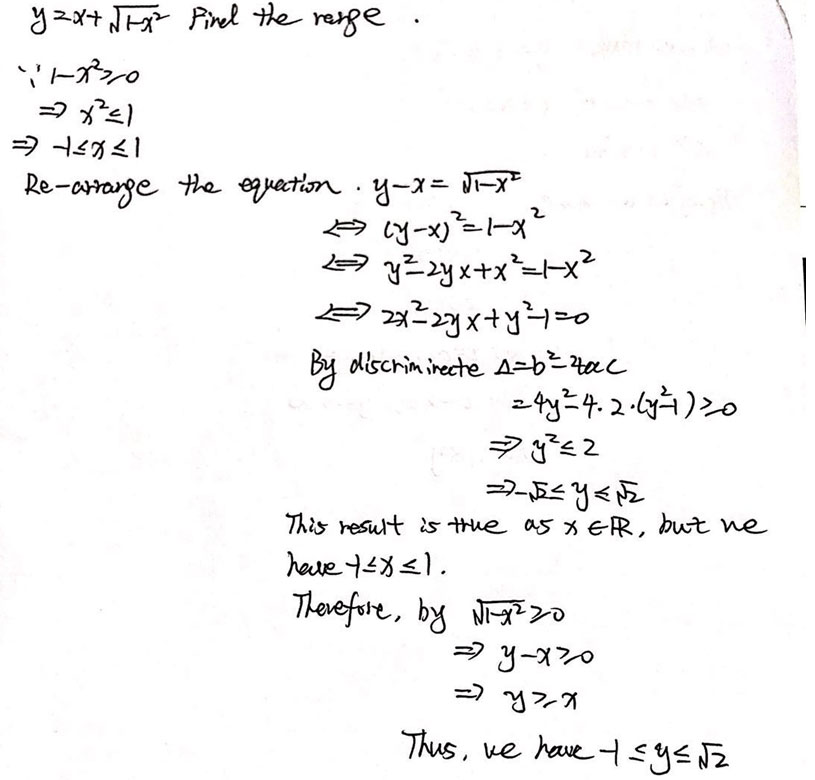 y=x+√1-x² Find the range .
∵ 1-x²≥0
⇒ x²≤1
⇒ -1≤x≤1
Re-arrange the equation . y-x= √1-x²
⇔ (y-x)²=1-x²
⇔ y²-2yx+x²=1-x²
⇔ 2x²-2yx+y²-1=0
By discriminecte Δ=b²-4ac
=4y²-4·2·(y²-1)≥0
⇒ y²≤2
⇒-√2≤y≤√2
This result is true as x∈ℝ, but we
have -1≤x≤1.
Therefore, by √1-x²≥0
⇒ y-x≥0
⇒ y≥x
Thus, we have -1≤y≤√2